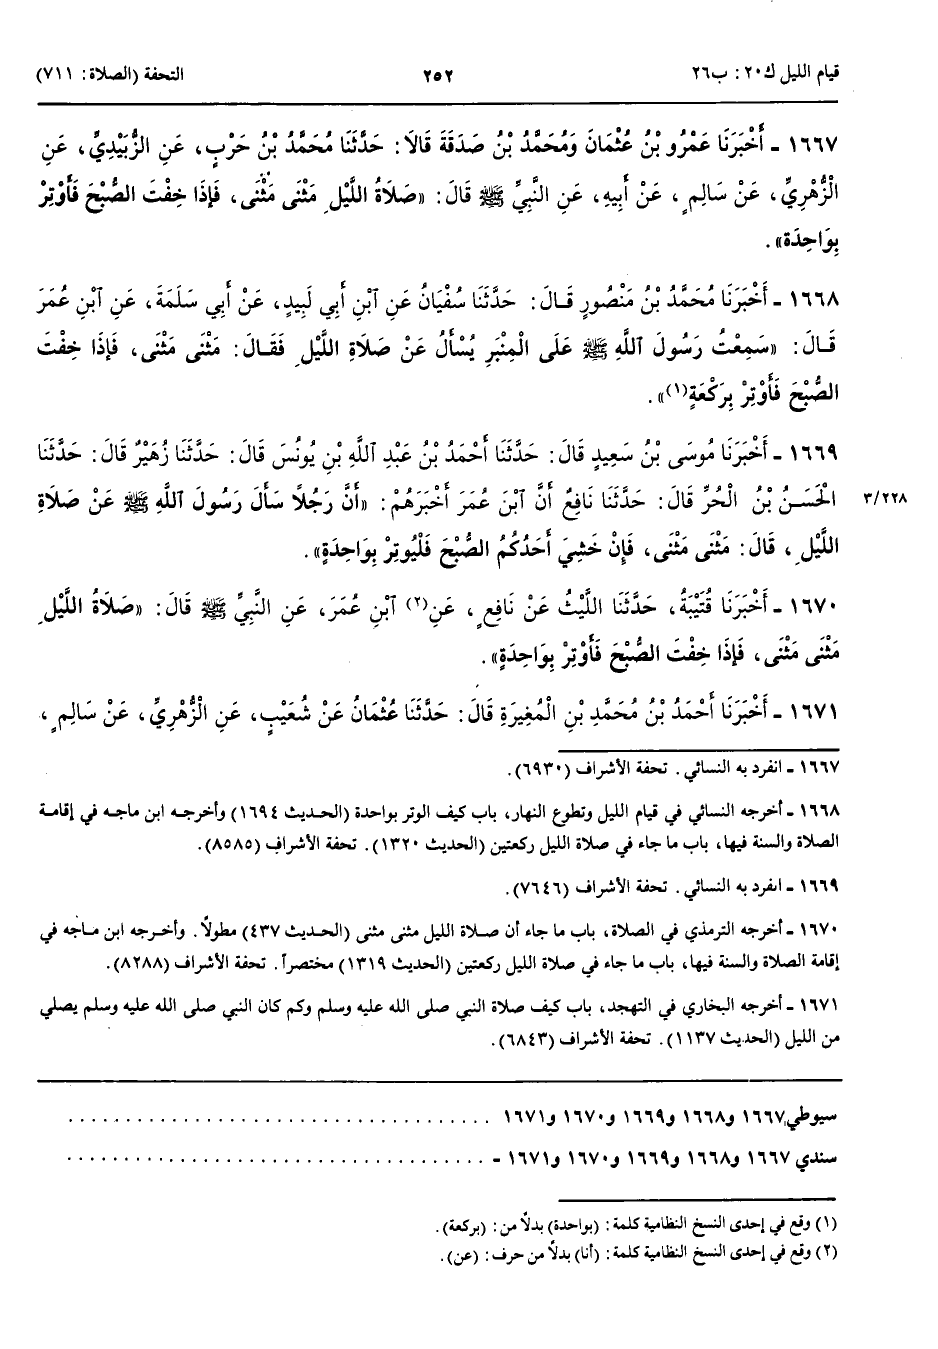 قيام الليل ك٢٠: ب٢٦
٢٥٢
التحفة (الصلاة: ٧١١)
١٦٦٧ ـ أَخْبَرَنَا عَمْرُو بْنُ عُثْمَانَ وَمُحَمَّدُ بْنُ صَدَقَةَ قَالَا: حَدَّثَنَا مُحَمَّدُ بْنُ حَرْبٍ، عَنِ الزُّبَيْدِيِّ، عَنِ
الْزُّهْرِيِّ، عَنْ سَالِمٍ، عَنْ أَبِيهِ، عَنِ النَّبِيِّ ﷺ قَالَ: «صَلَاةُ اللَّيْلِ مَثْنَى مَثْنَى، فَإِذَا خِفْتَ الصُّبْحَ فَأَوْتِرْ
بِوَاحِدَة».
١٦٦٨ ـ أَخْبَرَنَا مُحَمَّدُ بْنُ مَنْصُورٍ قَالَ: حَدَّثَنَا سُفْيَانُ عَنِ ٱبْنِ أَبِي لَبِيدٍ، عَنْ أَبِي سَلَمَةَ، عَنِ ٱبْنِ عُمَرَ
قَالَ: «سَمِعْتُ رَسُولَ ٱللَّهِ ﷺ عَلَى الْمِنْبَرِ يُسْأَلُ عَنْ صَلَاةِ اللَّيْلِ فَقَالَ: مَثْنَى مَثْنَى، فَإِذَا خِفْتَ
الصُّبْحَ فَأَوْتِرْ بِرَكْعَةٍ(١)».
١٦٦٩ ـ أَخْبَرَنَا مُوسَى بْنُ سَعِيدٍ قَالَ: حَدَّثَنَا أَحْمَدُ بْنُ عَبْدِ ٱللَّهِ بْنِ يُونُسَ قَالَ: حَدَّثَنَا زُهَيْرٌ قَالَ: حَدَّثَنَا
الْحَسَنُ بْنُ الْحُرِّ قَالَ: حَدَّثَنَا نَافِعٌ أَنَّ ٱبْنَ عُمَرَ أَخْبَرَهُمْ: «أَنَّ رَجُلًا سَأَلَ رَسُولَ ٱللَّهِ ﷺ عَنْ صَلَاةِ
٣/٢٢٨
اللَّيْلِ، قَالَ: مَثْنَى مَثْنَى، فَإِنْ خَشِيَ أَحَدُكُمُ الصُّبْحَ فَلْيُوتِرْ بِوَاحِدَةٍ».
١٦٧٠ ـ أَخْبَرَنَا قُتَيْبَةُ، حَدَّثَنَا اللَّيْثُ عَنْ نَافِعٍ، عَنِ(٢) ٱبْنِ عُمَرَ، عَنِ النَّبِيِّ ﷺ قَالَ: «صَلَاةُ اللَّيْلِ
مَثْنَى مَثْنَى، فَإِذَا خِفْتَ الصُّبْحَ فَأَوْتِرْ بِوَاحِدَةٍ».
١٦٧١ ـ أَخْبَرَنَا أَحْمَدُ بْنُ مُحَمَّدِ بْنِ الْمُغِيرَةِ قَالَ: حَدَّثَنَا عُثْمَانُ عَنْ شُعَيْبٍ، عَنِ الْزُّهْرِيِّ، عَنْ سَالِمٍ،
١٦٦٧ ـ انفرد به النسائي. تحفة الأشراف (٦٩٣٠).
١٦٦٨ ـ أخرجه النسائي في قيام الليل وتطوع النهار، باب كيف الوتر بواحدة (الحديث ١٦٩٤) وأخرجه ابن ماجه في إقامة
الصلاة والسنة فيها، باب ما جاء في صلاة الليل ركعتين (الحديث ١٣٢٠). تحفة الأشراف (٨٥٨٥).
١٦٦٩ ـ انفرد به النسائي. تحفة الأشراف (٧٦٤٦).
١٦٧٠ ـ أخرجه الترمذي في الصلاة، باب ما جاء أن صلاة الليل مثنى مثنى (الحديث ٤٣٧) مطولاً. وأخرجه ابن ماجه في
إقامة الصلاة والسنة فيها، باب ما جاء في صلاة الليل ركعتين (الحديث ١٣١٩) مختصراً. تحفة الأشراف (٨٢٨٨).
١٦٧١ ـ أخرجه البخاري في التهجد، باب كيف صلاة النبي صلى الله عليه وسلم وكم كان النبي صلى الله عليه وسلم يصلي
من الليل (الحديث ١١٣٧). تحفة الأشراف (٦٨٤٣).
سيوطي ١٦٦٧ و١٦٦٨ و١٦٦٩ و١٦٧٠ و١٦٧١ ......................................
سندي ١٦٦٧ و١٦٦٨ و١٦٦٩ و١٦٧٠ و١٦٧١ ـ ......................................
(١) وقع في إحدى النسخ النظامية كلمة: (بواحدة) بدلاً من: (بركعة).
(٢) وقع في إحدى النسخ النظامية كلمة: (أنا) بدلاً من حرف: (عن).